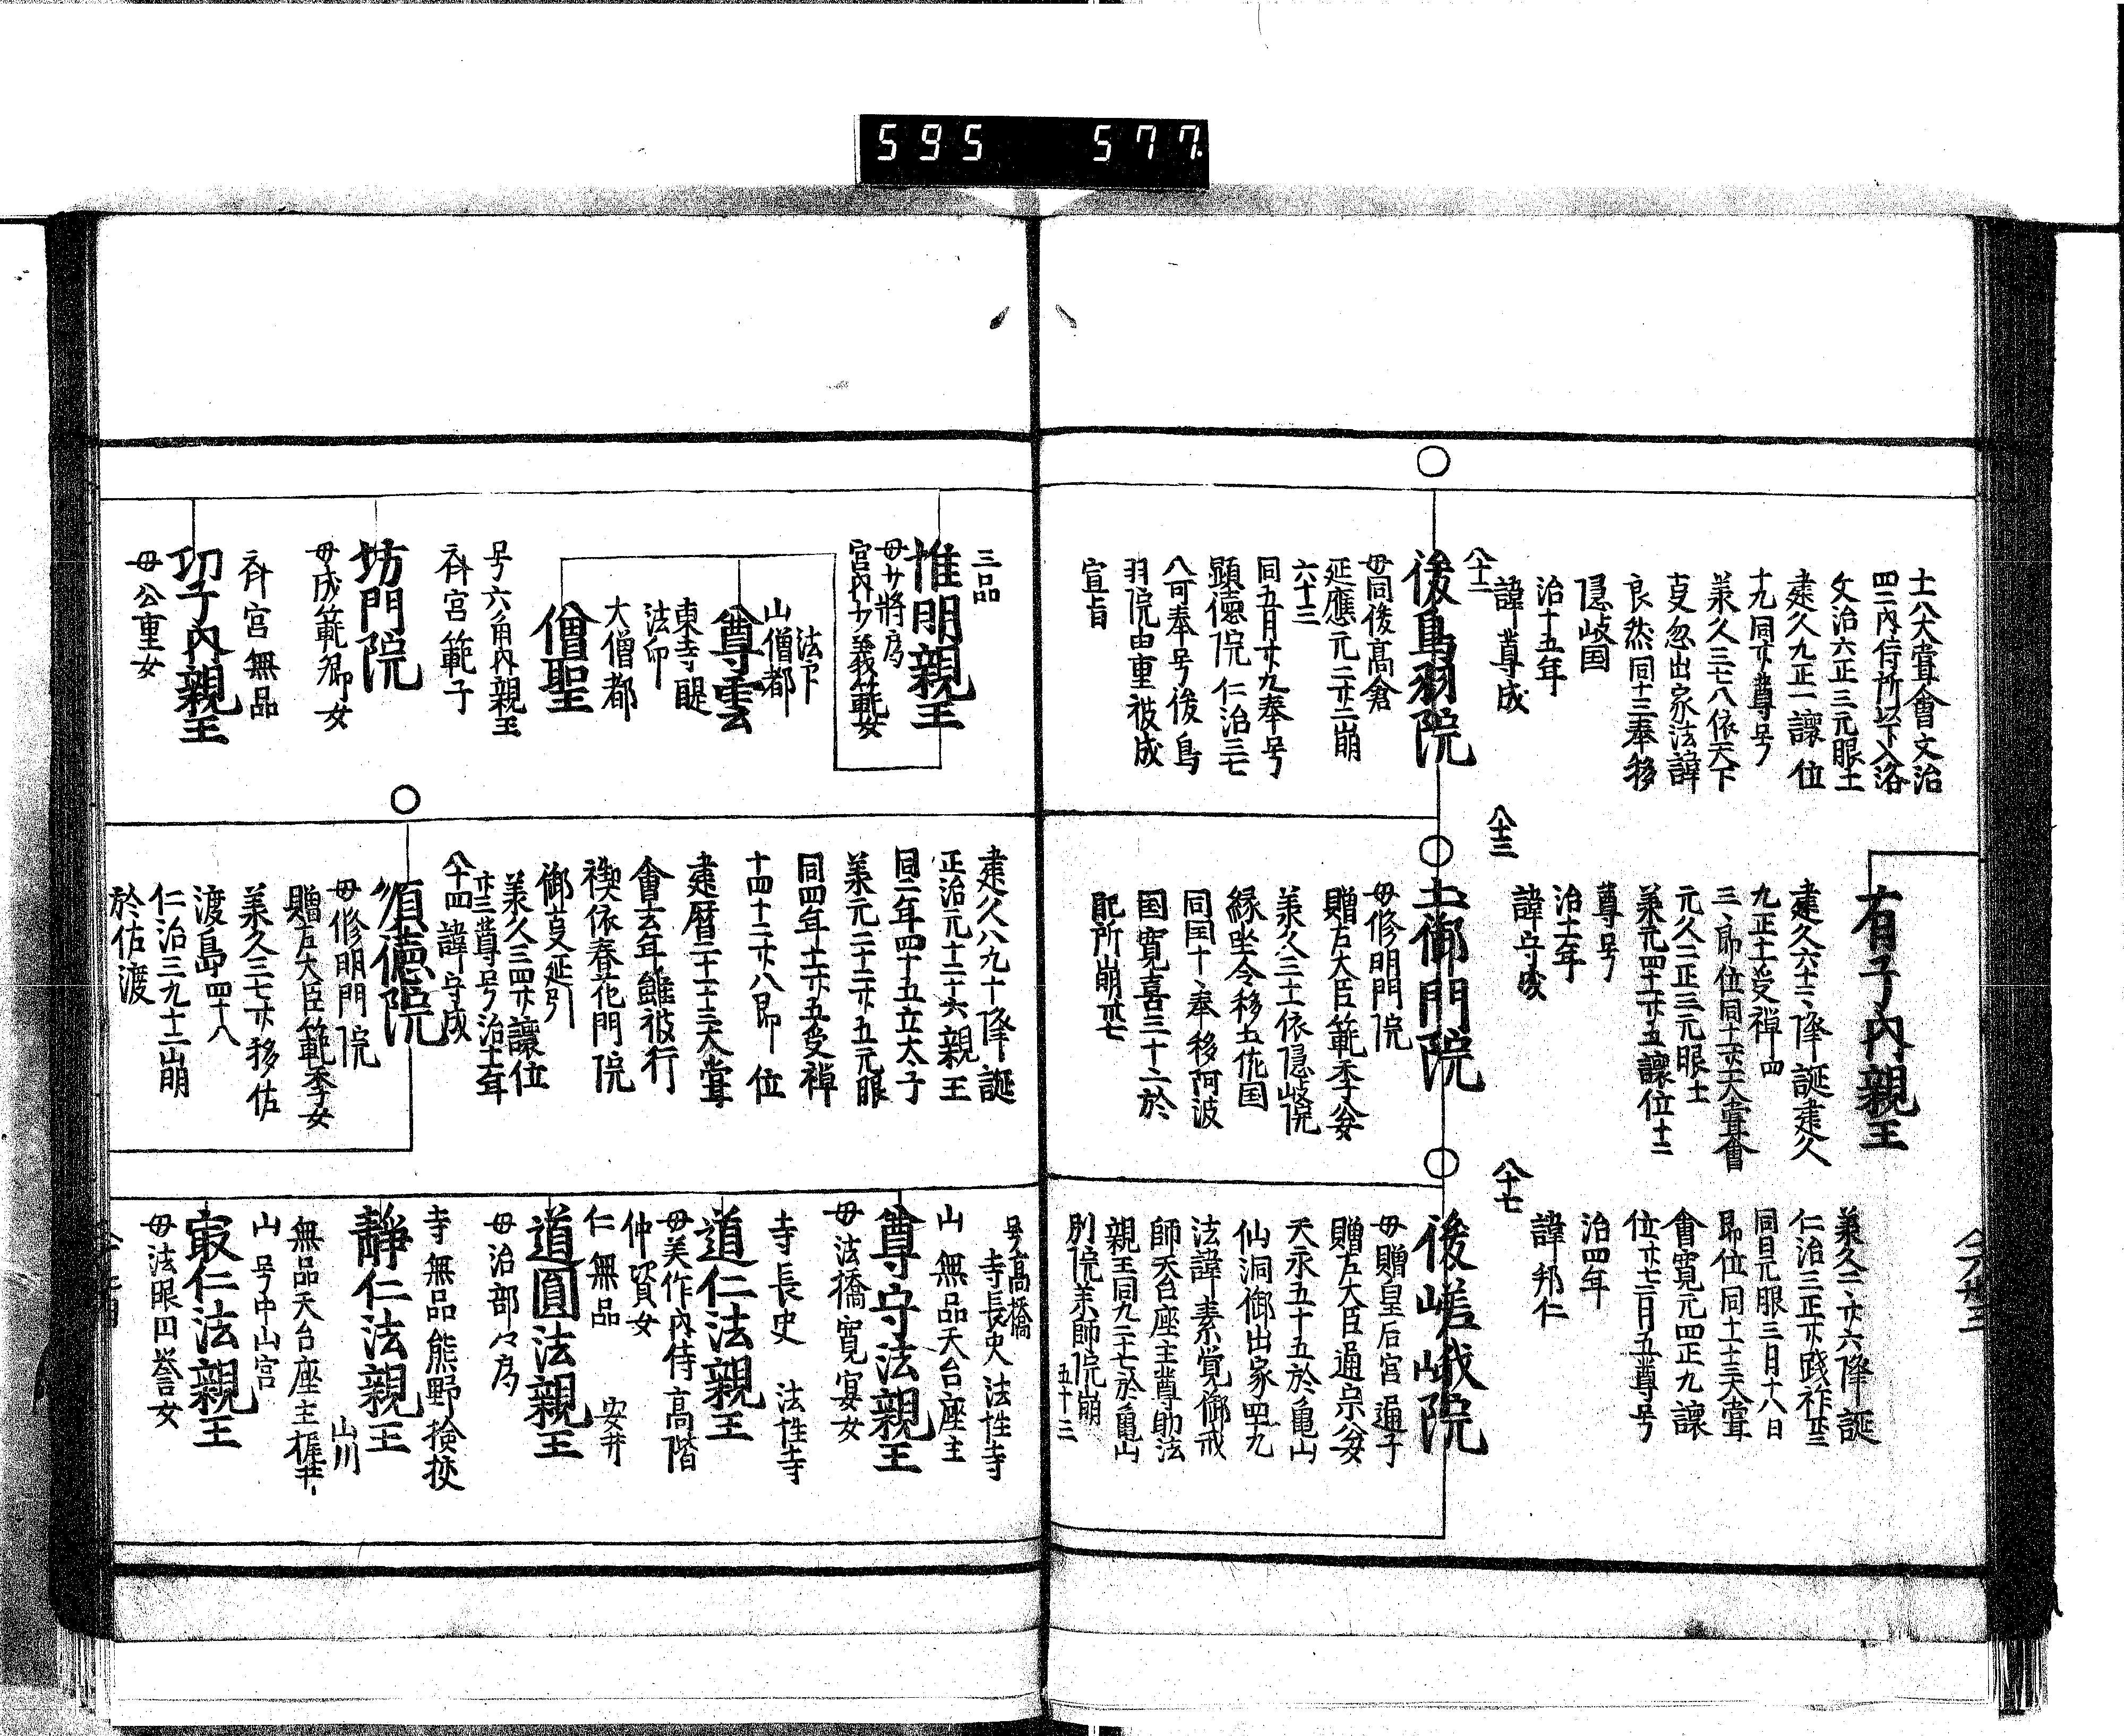 595 577
十一八大嘗會文治
四二内侍所坐下入洛
文治六正三元服土
建久九正一讓位
十九同廿尊号
義久三七八依天下
㕝忽出家法諱
良然同十三奉移
隠岐国
治十五年
諱尊成
八十二
後鳥羽院
母同後高倉
延應元二廿二崩
六十三
同五月廿九奉号
顕徳院仁治三七
八可奉号後鳥
羽院由重被成
宣旨
有子内親王
建久六十二、降誕建久
九正十一受禅四
三、即位同十一廿大嘗會
元久二正三元服土
義元四十一廿五讓位十二
尊号
治十二年
諱守成
八十三
土御門院
母修明門院
贈左大臣範季公女
義久三十一依隠岐院
縁坐令移土佐国
同国十、奉移阿波
国寛喜三十二於
配所崩卅七
義久二、廿六降誕
仁治三正廿践祚廿三
同日元服三月十八日
即位同十一十三大嘗
會寛元四正九讓
位廿七二月五尊号
治四年
諱邦仁
八十七
後嵯峨院
母贈皇后宮通子
贈左大臣通宗公女
天永五十五於亀山
仙洞御出家四十九
法諱素覚御戒
師天台座主尊助法
親王同九二十七於亀山
別院薬師院崩
五十三
三品
惟明親王
母少將局
宮内少義範女
法下
山僧都
尊雲
東寺醍
法印
大僧都
僧聖
号六角内親王
斎宮範子
坊門院
母成範卿女
斎宮無品
功子内親王
母公重女
建久八九十降誕
正治元十二十六親王
同二年四十五立太子
義元二十二廿五元服
同四年十一廿五受禅
十四十二廿八即位
建暦二十一十三大嘗
會去年雖被行
禊依春花門院
御㕝延引
義久三四廿讓位
廿三尊号治十二年
八十四諱守成
順徳院
母修明門院
贈左大臣範季女
義久三七廿移佐
渡島四十八
仁治三九十二崩
於佐渡
号高橋
寺長吏法性寺
山無品天台座主
尊守法親王
母法橋寛宴女
寺長史法性寺
道仁法親王
母美作内侍高階
仲賢女
仁無品安井
道圓法親王
母治部々局
寺無品熊野検挍
静仁法親王
山川
無品天台座主梶井
山号中山宮
寂仁法親王
母法眼円誉女